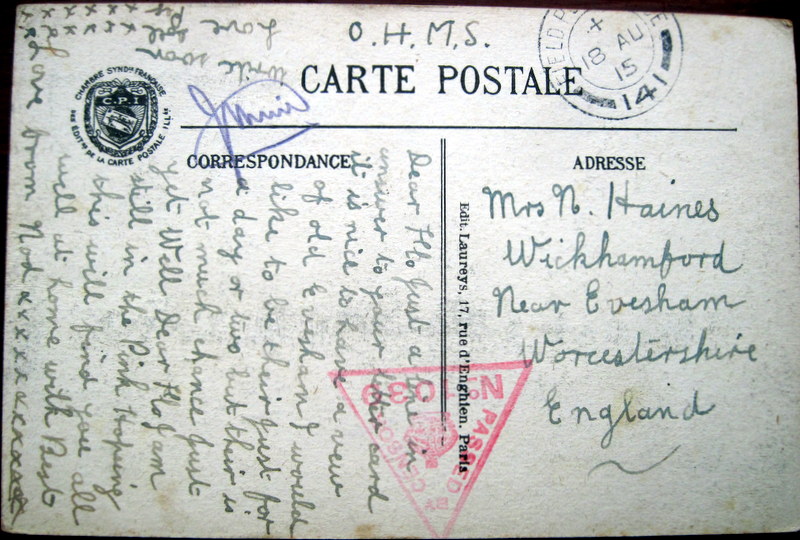 O.H.M.S.
CARTE POSTALE
FIELD POST OFFICE
X
18 AU
15
141
CHAMBRE SYNDle FRANÇAISE
C.P.I
DES EDITrs DE LA CARTE POSTALE ILLée
CORRESPONDANCE
ADRESSE
Mrs N. Haines
Wickhamford
Near Evesham
Worcestershire
England
Edit. Laureys, 17, rue d'Enghien, Paris
PASSED BY CENSOR
No 1039
Dear Flo Just a line in
answer to your letter card
it is nice to have a view
of old Evesham I would
like to be their just for
a day or two but their is
not much chance just
yet Well Dear Flo I am
still in the Pink Hoping
this will find you all
well at home with Best
Love from Nod xxxxxxxxxxx
write soon
love
x x x x x
x x x x